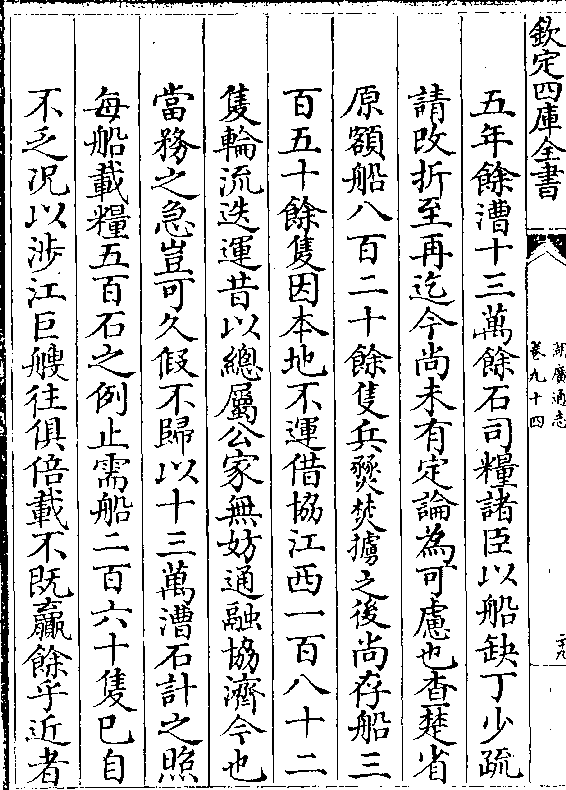 欽定四庫全書
湖廣通志
卷九十四
五年餘漕十三萬餘石司糧諸臣以船缺丁少疏
請改折至再迄今尚未有定論為可慮也查楚省
原額船八百二十餘隻兵燹焚擄之後尚存船三
百五十餘隻因本地不運借協江西一百八十二
隻輪流迭運昔以總屬公家無妨通融協濟今也
當務之急豈可久假不歸以十三萬漕石計之照
每船載糧五百石之例止需船二百六十隻已自
不乏况以涉江巨艘往俱倍載不既贏餘乎近者